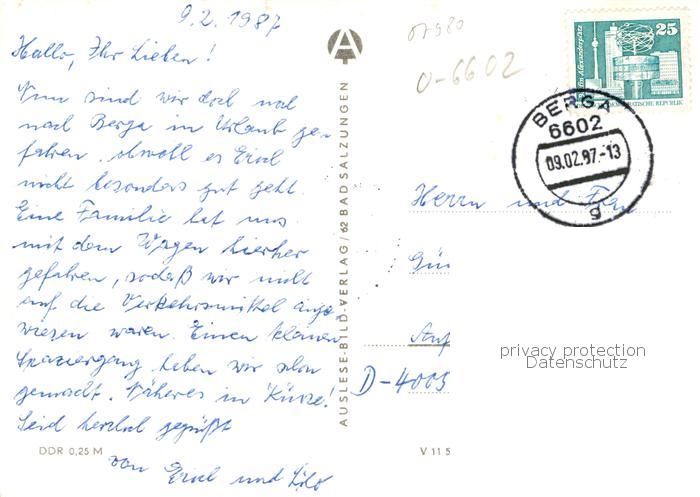 9.2.1987
Hallo, Ihr Lieben!
Nun sind wir doch mal
nach Berga in Urlaub ge-
fahren, obwohl es
nicht besonders gut geht.
Eine Familie hat uns
mit dem Wagen hierher
gefahren, sodaß wir nicht
auf die Verkehrsmittel ange-
wiesen waren. Einen kleinen
Spaziergang haben wir schon
gemacht. Näheres in Kürze!
Seid herzlich gegrüßt
von und
DDR 0,25 M
AUSLESE-BILD-VERLAG/62 BAD SALZUNGEN
V 11 5
0-6602
25
Berlin, Alexanderplatz
DEUTSCHE DEMOKRATISCHE REPUBLIK
BERGA
6602
09.02.87.-13
g
Herrn und Frau
Gün
D-4005
privacy protection
Datenschutz